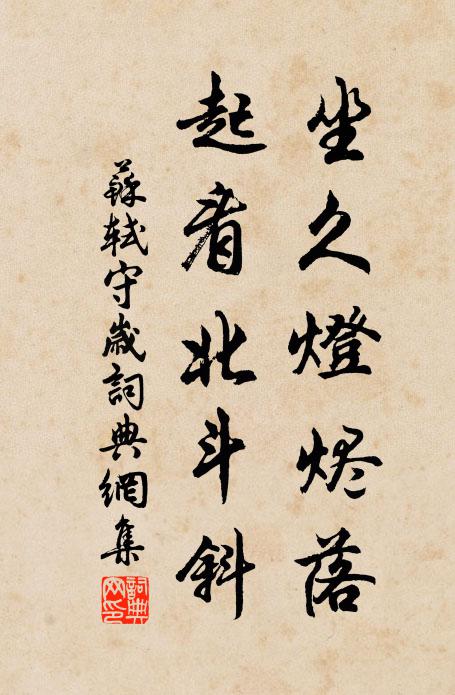 坐久燈烬落
起看北斗斜
蘇軾守歲詞典網集
詞典网印